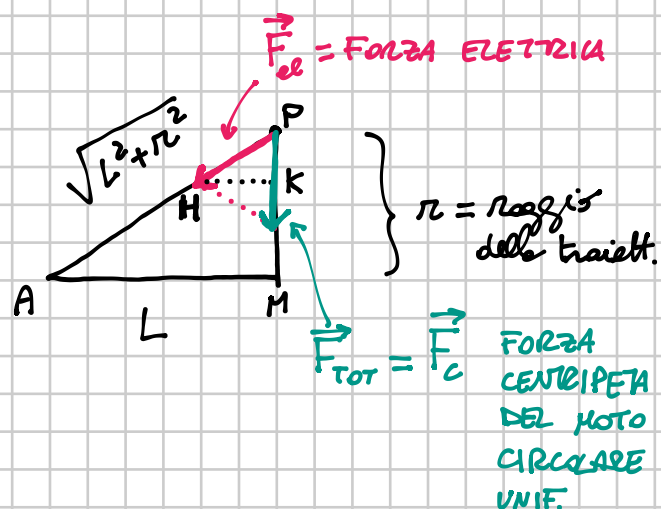 F⃗el = FORZA ELETTRICA
√L²+r²
P
H
K
r = raggio
della traiett.
A
L
M
F⃗TOT = F⃗C
FORZA
CENTRIPETA
DEL MOTO
CIRCOLARE
UNIF.